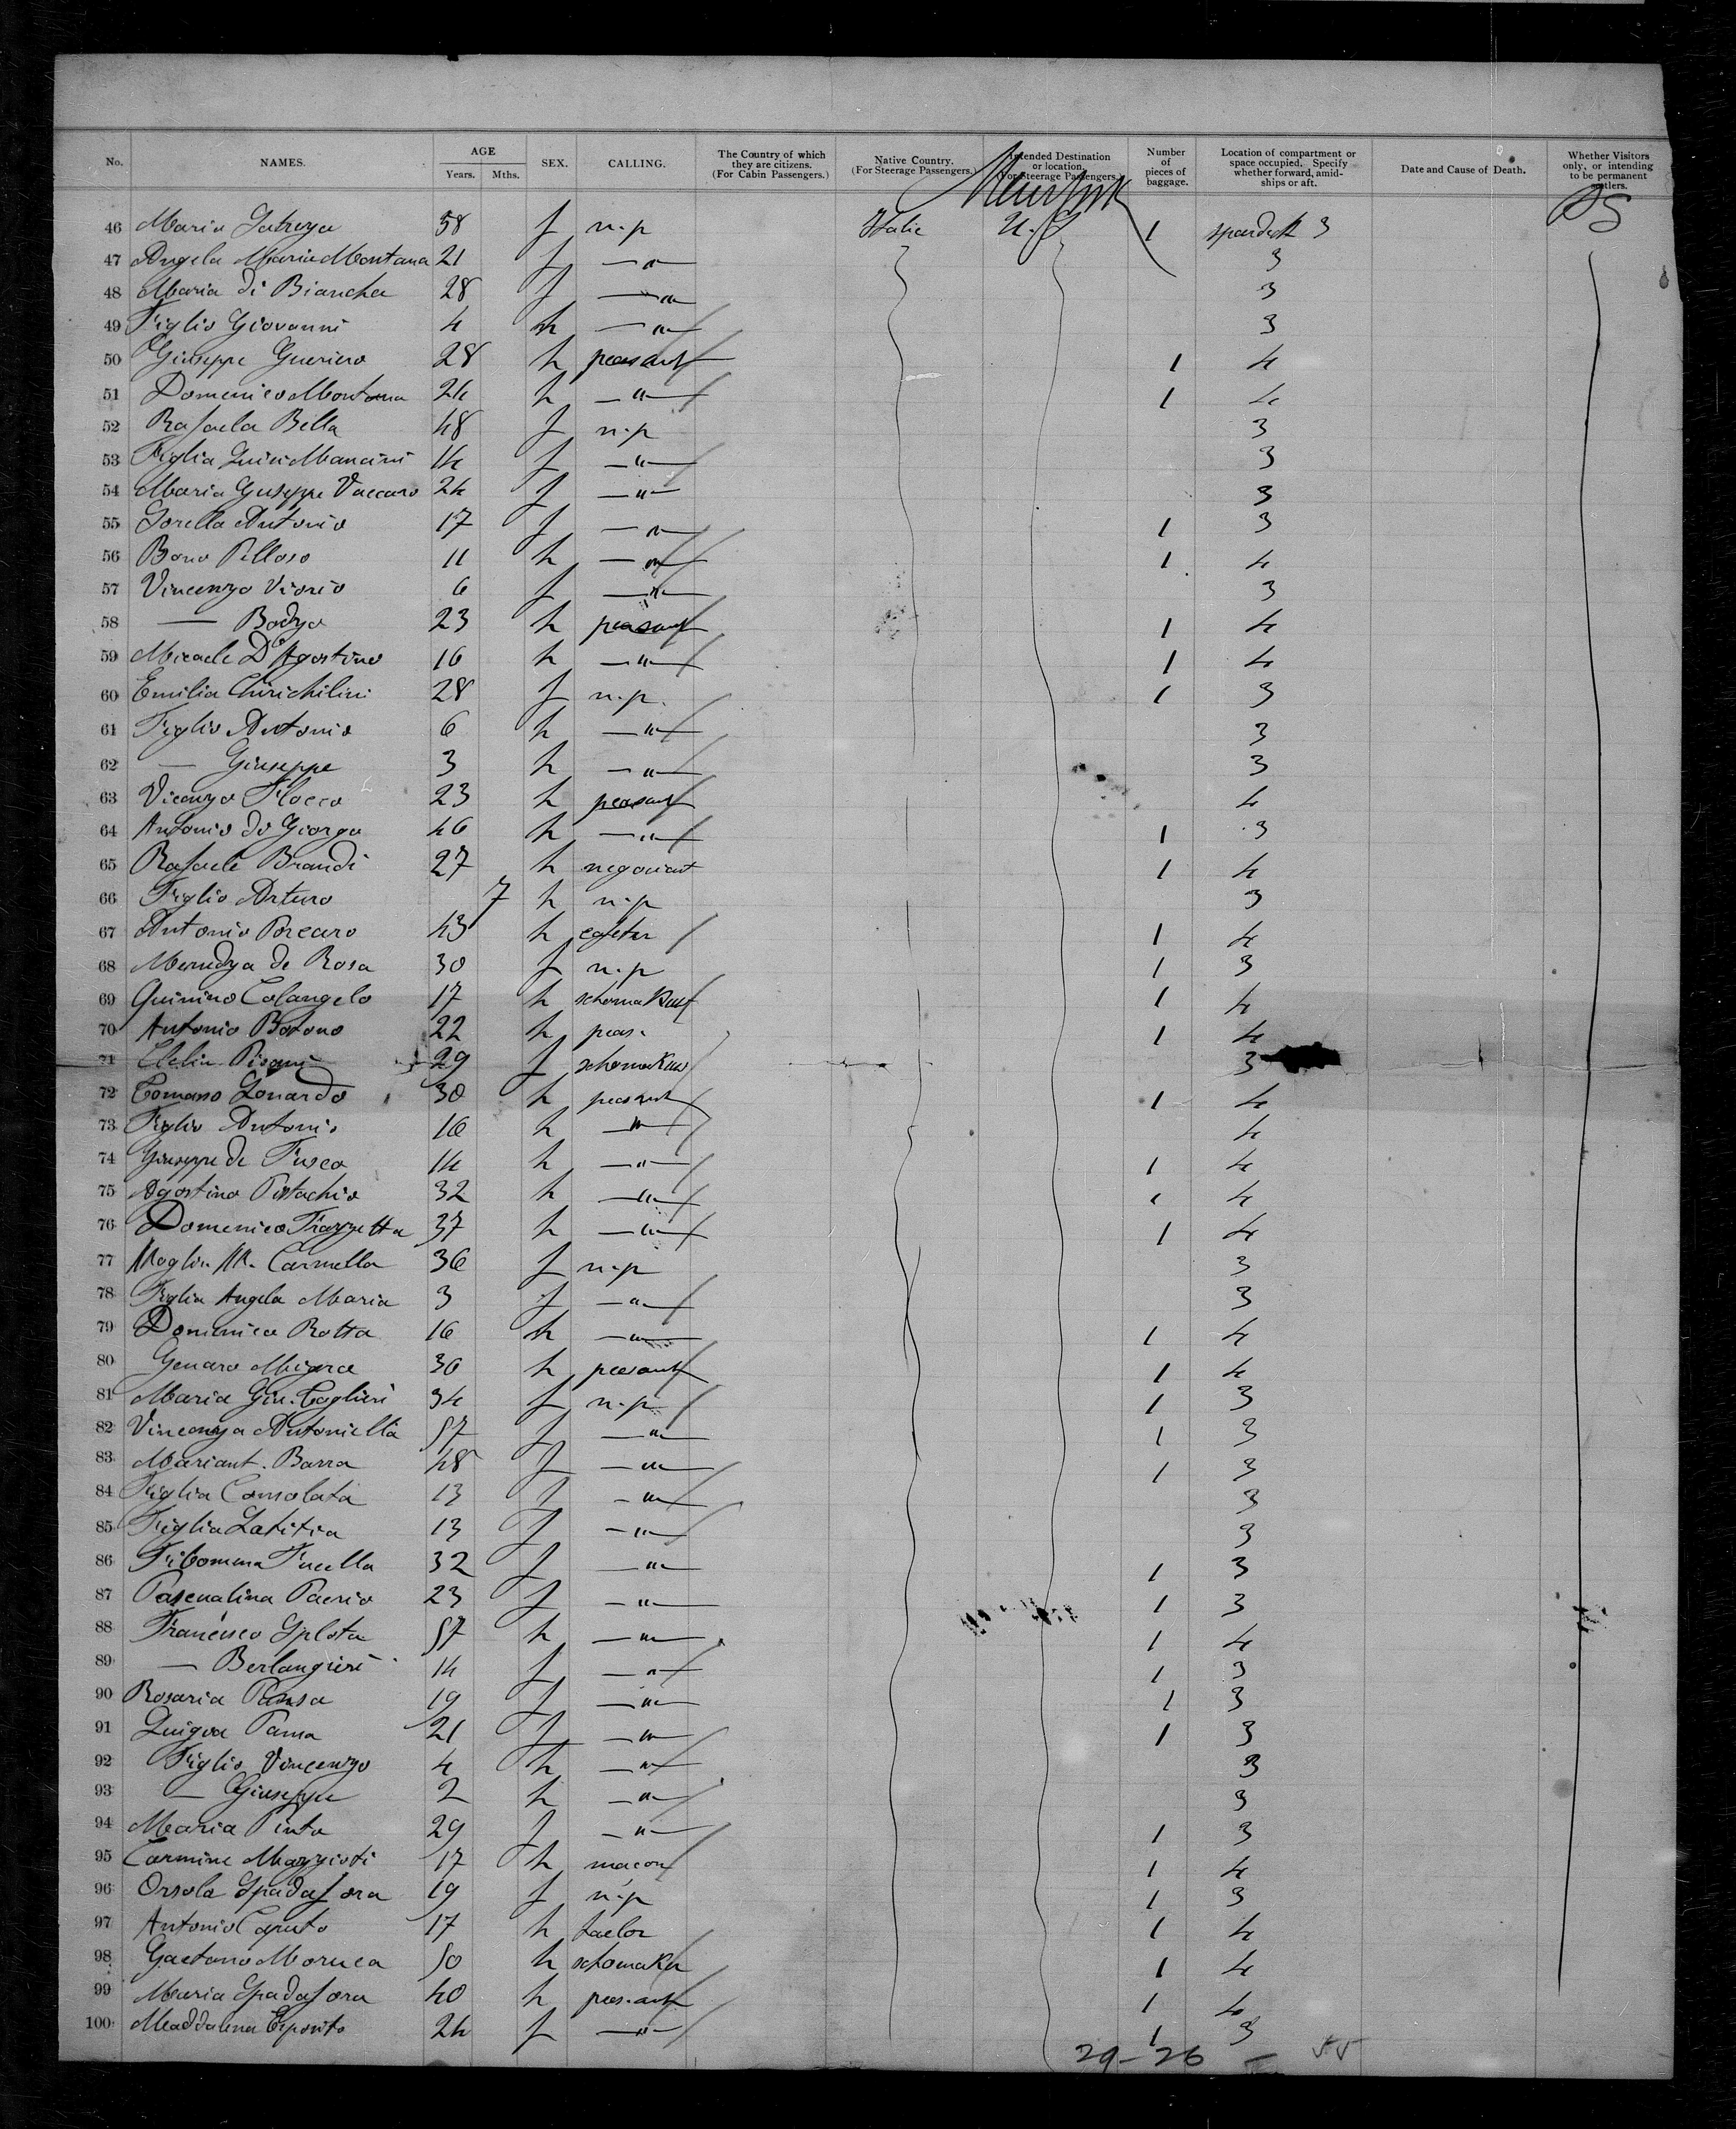 No. NAMES. AGE Years. Mths. SEX. CALLING. The Country of which they are citizens. (For Cabin Passengers.) Native Country. (For Steerage Passengers.) Intended Destination or location. (For Steerage Passengers.) Number of pieces of baggage. Location of compartment or space occupied. Specify whether forward, amidships or aft. Date and Cause of Death. Whether Visitors only, or intending to be permanent settlers.
New York
46 Maria 58 f n.p Italie U.S 1 3
47 Angela Maria Montana 21 f —"— 3
48 Maria di Biancha 28 f —"— 3
49 Figlio Giovanni 4 h —"— 3
50 Giuseppe Gueriero 28 h peasant 1 4
51 Domenico Montana 24 h —"— 1 4
52 Rafaela Bella 48 f n.p 3
53 Figlia Mancini 14 f —"— 3
54 Maria Guseppe Vaccaro 24 f —"— 3
55 Sorella Antonio 17 f —"— 1 3
56 Bono Pelloso 11 h —"— 1 4
57 Vincenzo Viorio 6 f —"— 3
58 — 23 h peasant 1 4
59 Micaele D'Agostino 16 h —"— 1 4
60 Emilia Chirichilini 28 f n.p. 1 3
61 Figlio Antonio 6 h —"— 3
62 — Giuseppe 3 h —"— 3
63 Vicenzo Flocco 23 h peasant 4
64 Antonio do Giorgo 46 h —"— 1 3
65 Rafaele Brandi 27 h negociant 1 4
66 Figlio Arturo 7 h n.p 3
67 Antonio Porcaro 43 h 1 4
68 de Rosa 30 f n.p 1 3
69 Quinino Colangelo 17 h 1 4
70 Antonio 22 h peas. 1 4
71 Clelia Pisani 29 f 3
72 Tomaso Lonardo 30 h peasant 1 4
73 Figlio Antonio 16 h —"— 4
74 Giuseppe de Fusco 14 h —"— 1 4
75 Agostino Pistachio 32 h —"— 1 4
76 Domenico Frazzetta 37 h —"— 1 4
77 Moglie M. Carmella 36 f n.p 3
78 Figlia Angela Maria 3 f —"— 3
79 Domenico Rotta 16 h —"— 1 4
80 Genaro 30 h peasant 1 4
81 Maria Giu. Taglieri 34 f n.p 1 3
82 Vincenza Antoniella 57 f —"— 1 3
83 Mariant. Barra 48 f —"— 1 3
84 Figlia Consolata 13 f —"— 3
85 Figlia Latitia 13 f —"— 3
86 Fucella 32 f —"— 1 3
87 Pascualina Paerio 23 f —"— 1 3
88 Francisco Splota 57 h —"— 1 4
89 — Berlangieri 14 f —"— 1 3
90 Rosaria Pansa 19 f —"— 1 3
91 Pama 21 f —"— 1 3
92 Figlio Vincenzo 4 h —"— 3
93 — Giuseppe 2 h —"— 3
94 Maria Pinto 29 f —"— 1 3
95 Carmine Mazzioti 17 h macon 1 4
96 Orsola Spadafora 19 f n.p 1 3
97 Antonio Caputo 17 h taelor 1 4
98 Gaetano Moruca 50 h schomaker 1 4
99 Maria Spadafora 40 h peasant 1 4
100 Maddalena Esposito 24 f —"— 1 3
29-26 —